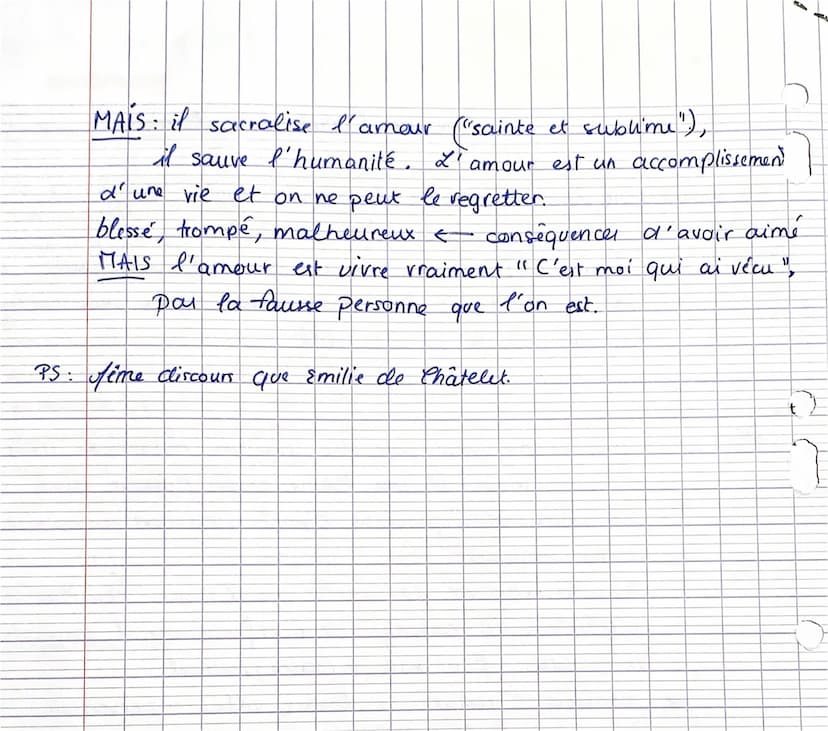 MAIS : il sacralise l'amour ("sainte et sublime"),
il sauve l'humanité. L'amour est un accomplissement
d'une vie et on ne peut le regretter.
blessé, trompé, malheureux ← conséquences d'avoir aimé
MAIS l'amour est vivre vraiment "C'est moi qui ai vécu",
pas la fausse personne que l'on est.
PS : Même discours que Emilie de Châtelet.
t